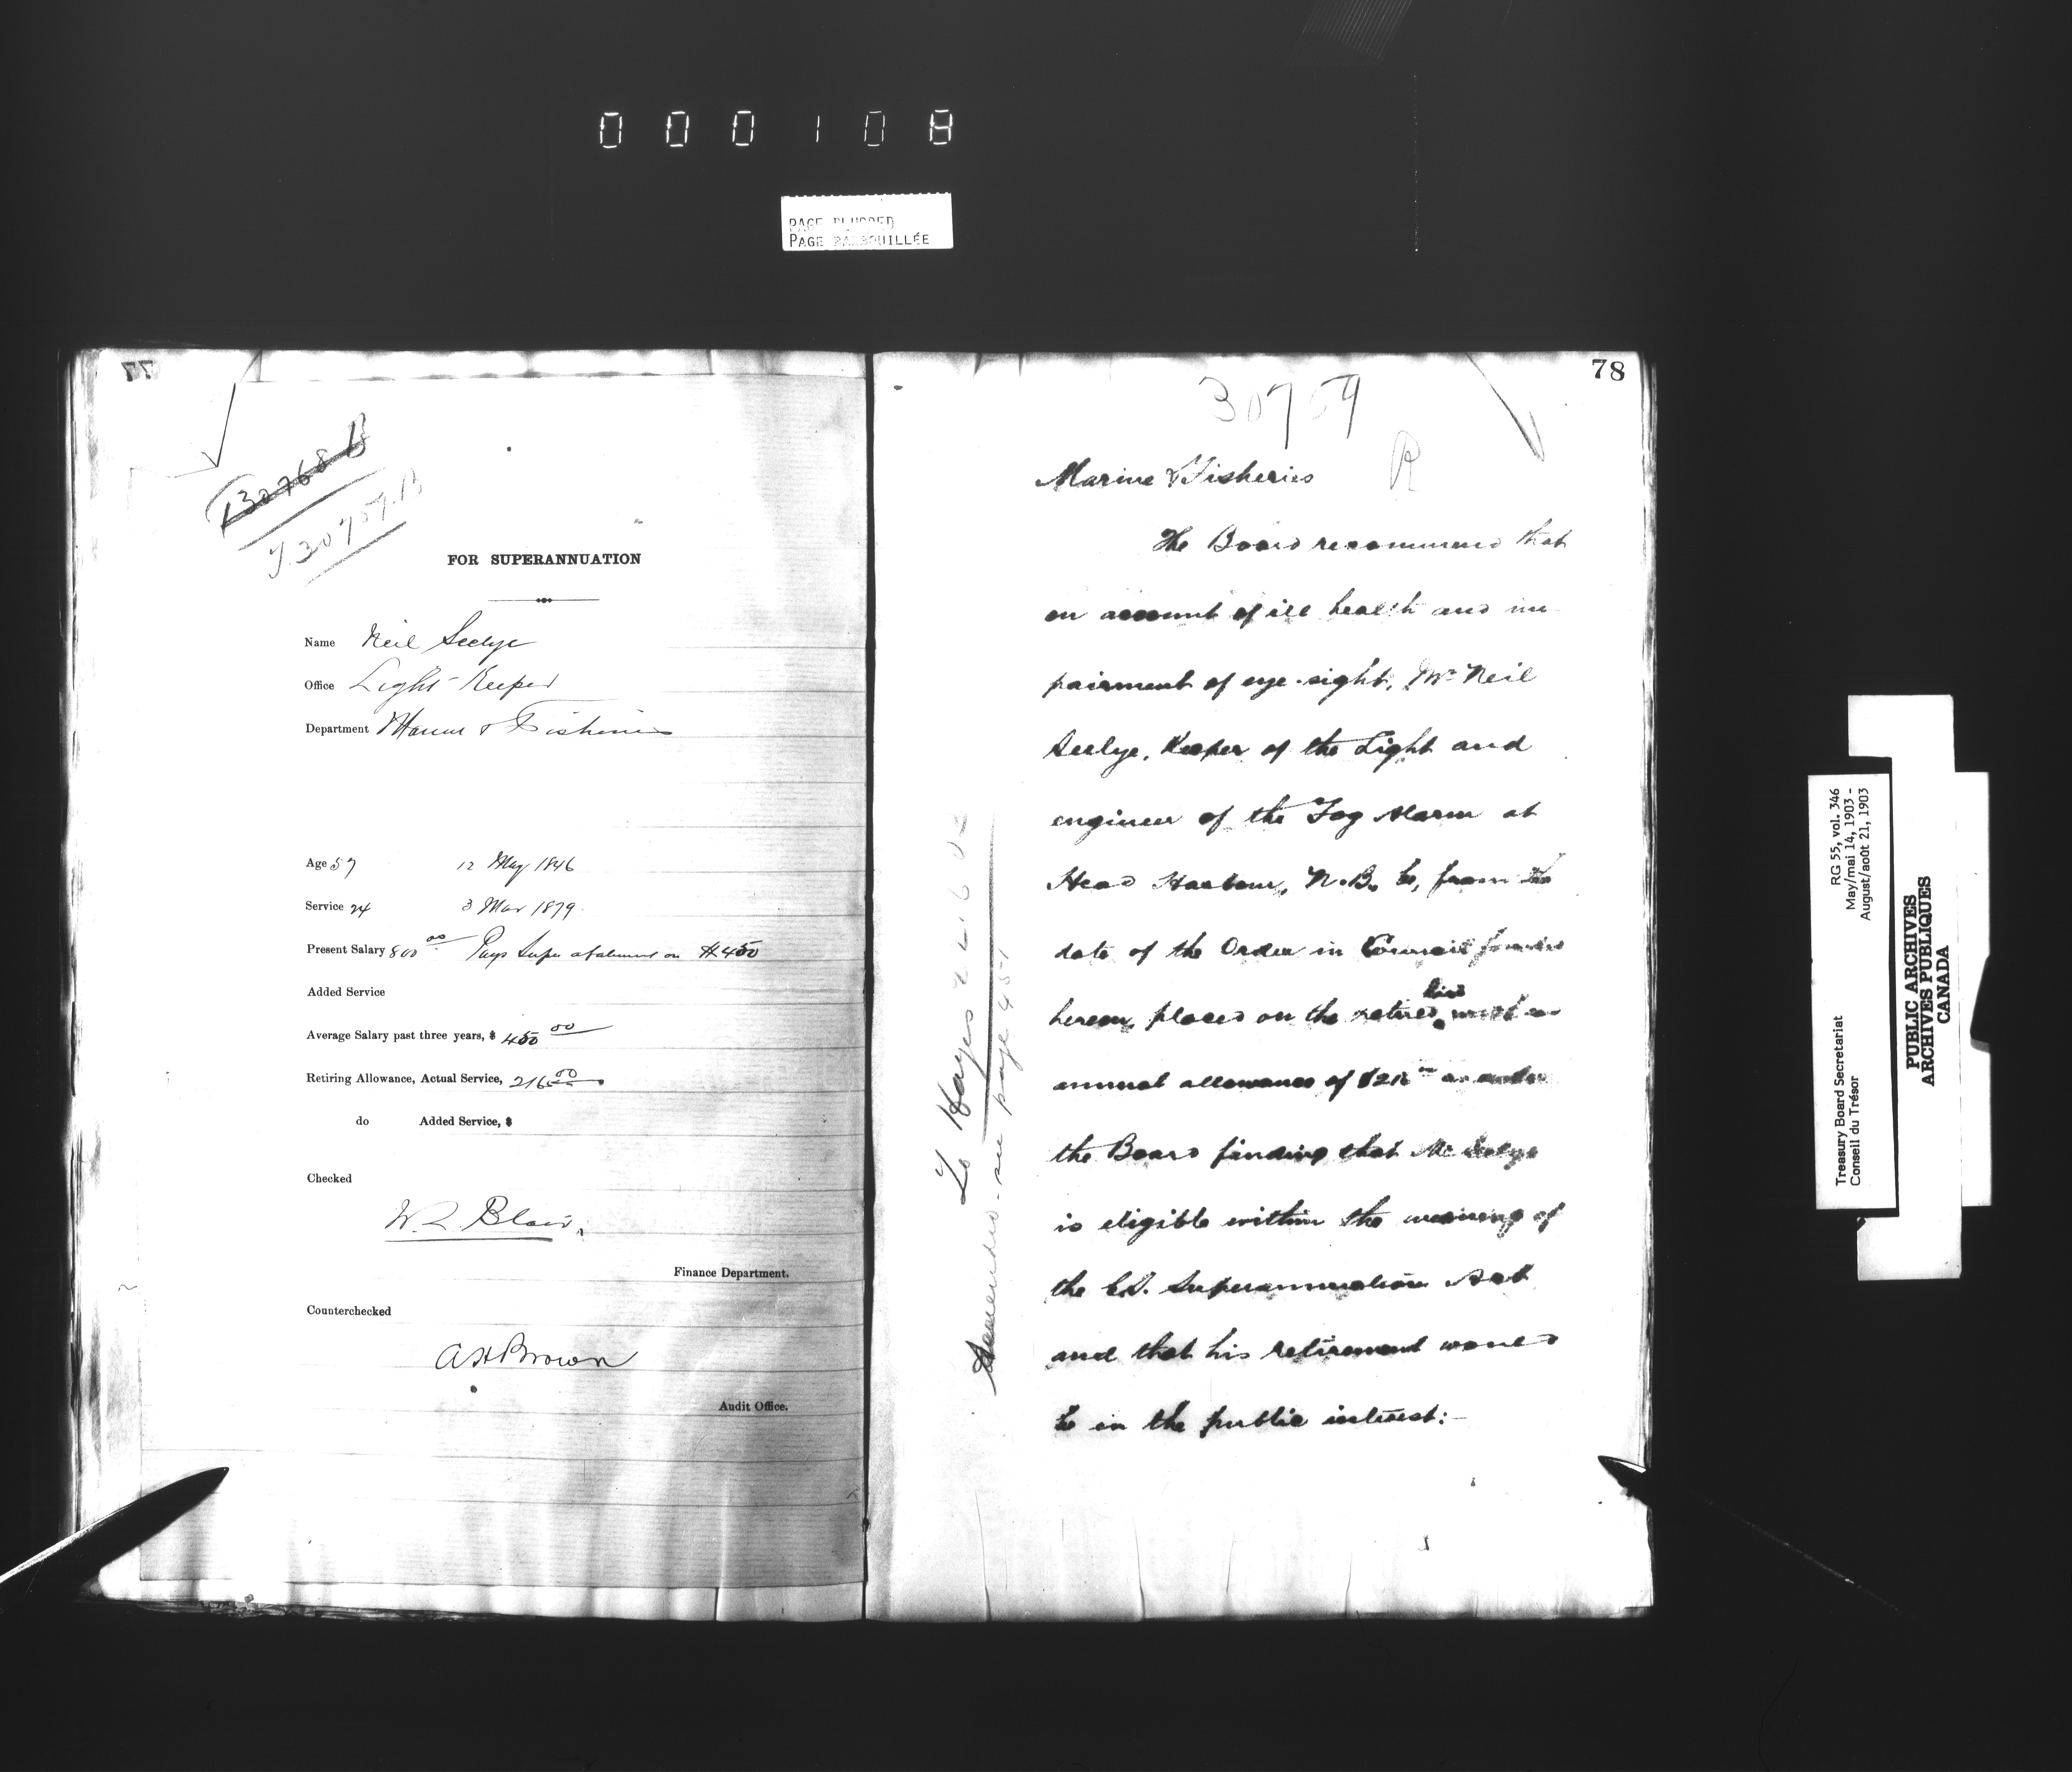 000108
PAGE BLURRED
PAGE BARBOUILLÉE
77
130768 B
T.30757.B
FOR SUPERANNUATION
Name Neil Seelye
Office Light Keeper
Department Marine & Fisheries
Age 57 12 May 1846
Service 24 3 Mar 1879
Present Salary 800 00 Pays Super abatement on $450
Added Service
Average Salary past three years, $ 450 00
Retiring Allowance, Actual Service, 216 00
do Added Service, $
Checked
W. L. Blair,
Finance Department.
Counterchecked
A H Brown
Audit Office.
78
R
Marine & Fisheries
The Board recommend that
on account of ill health and im-
pairment of eye-sight, Mr Neil
Seelye, Keeper of the Light and
engineer of the Fog Alarm at
Head Harbour, N.B. be, from the
date of the Order in Council founded
hereon, placed on the retired list with an
annual allowance of
the Board finding that Mr Seelye
is eligible within the meaning of
the C.S. Superannuation Act
and that his retirement would
be in the public interest:-
To Hayes
Amended - see page 451
Treasury Board Secretariat RG 55, vol. 346
Conseil du Trésor May/mai 14, 1903 -
August/août 21, 1903
PUBLIC ARCHIVES
ARCHIVES PUBLIQUES
CANADA